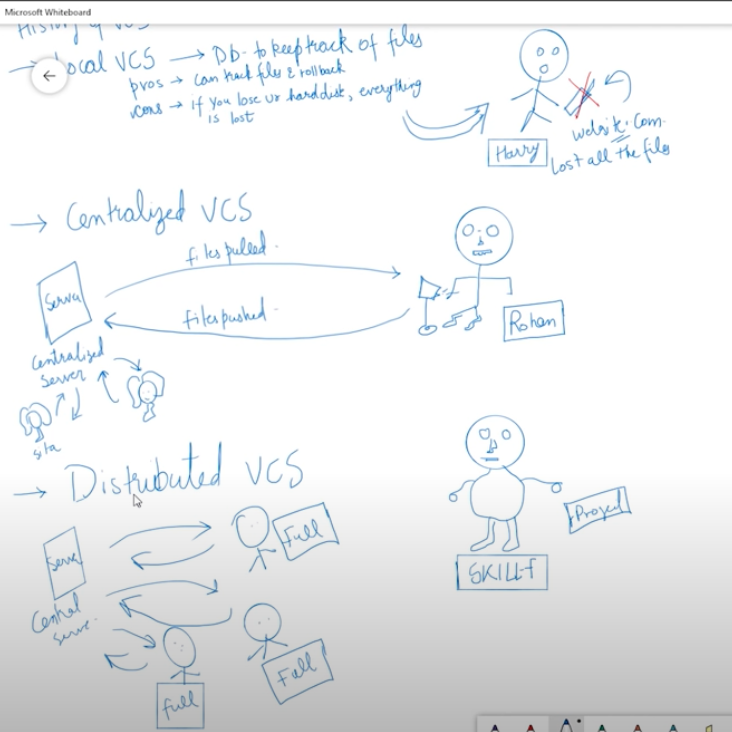 Microsoft Whiteboard
History of VCS
→ Local VCS → Db- to keep track of files
pros → can track files & rollback
cons → if you lose ur harddisk, everything
is lost
Harry
website.com.
lost all the files
→ Centralized VCS
files pulled.
Server
files pushed.
Rohan
Centralized
Server
sita
→ Distributed VCS
Server
Full
Project
SKILLF
Central
serve.
Full
full